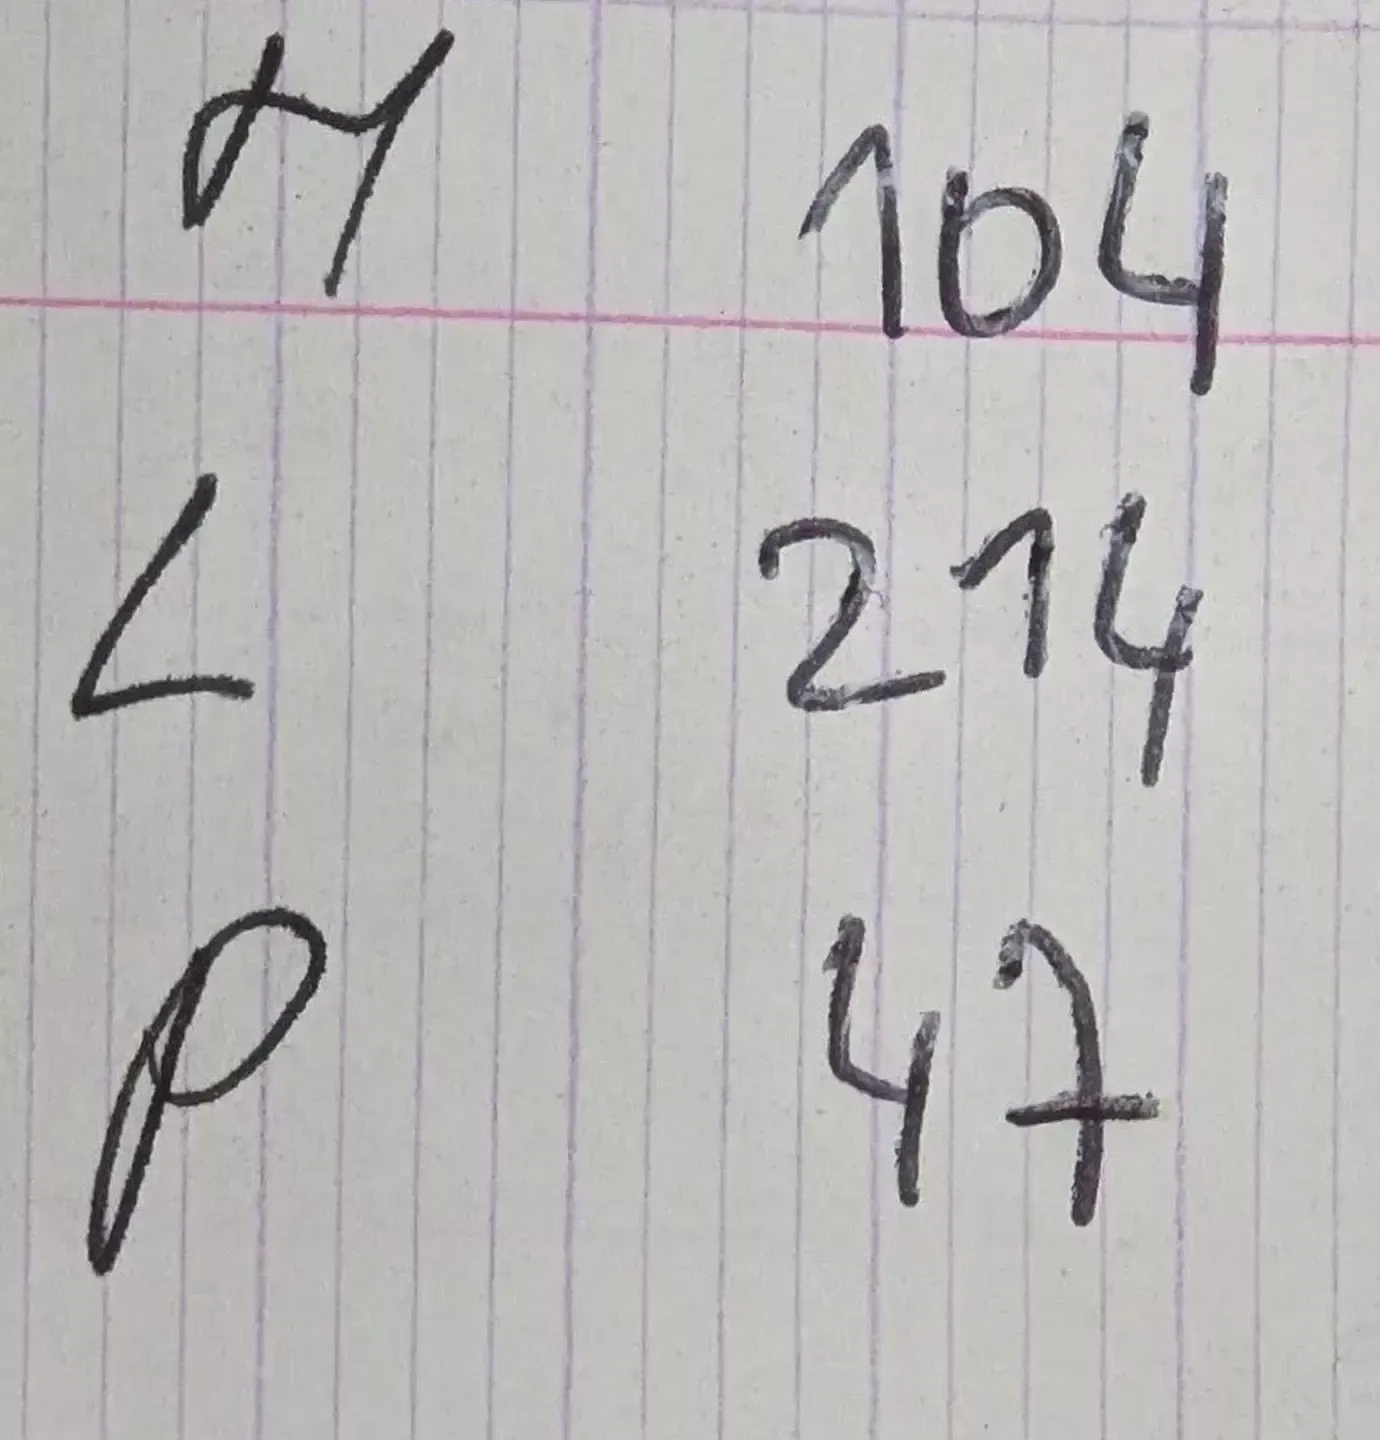 M 104
L 214
P 47